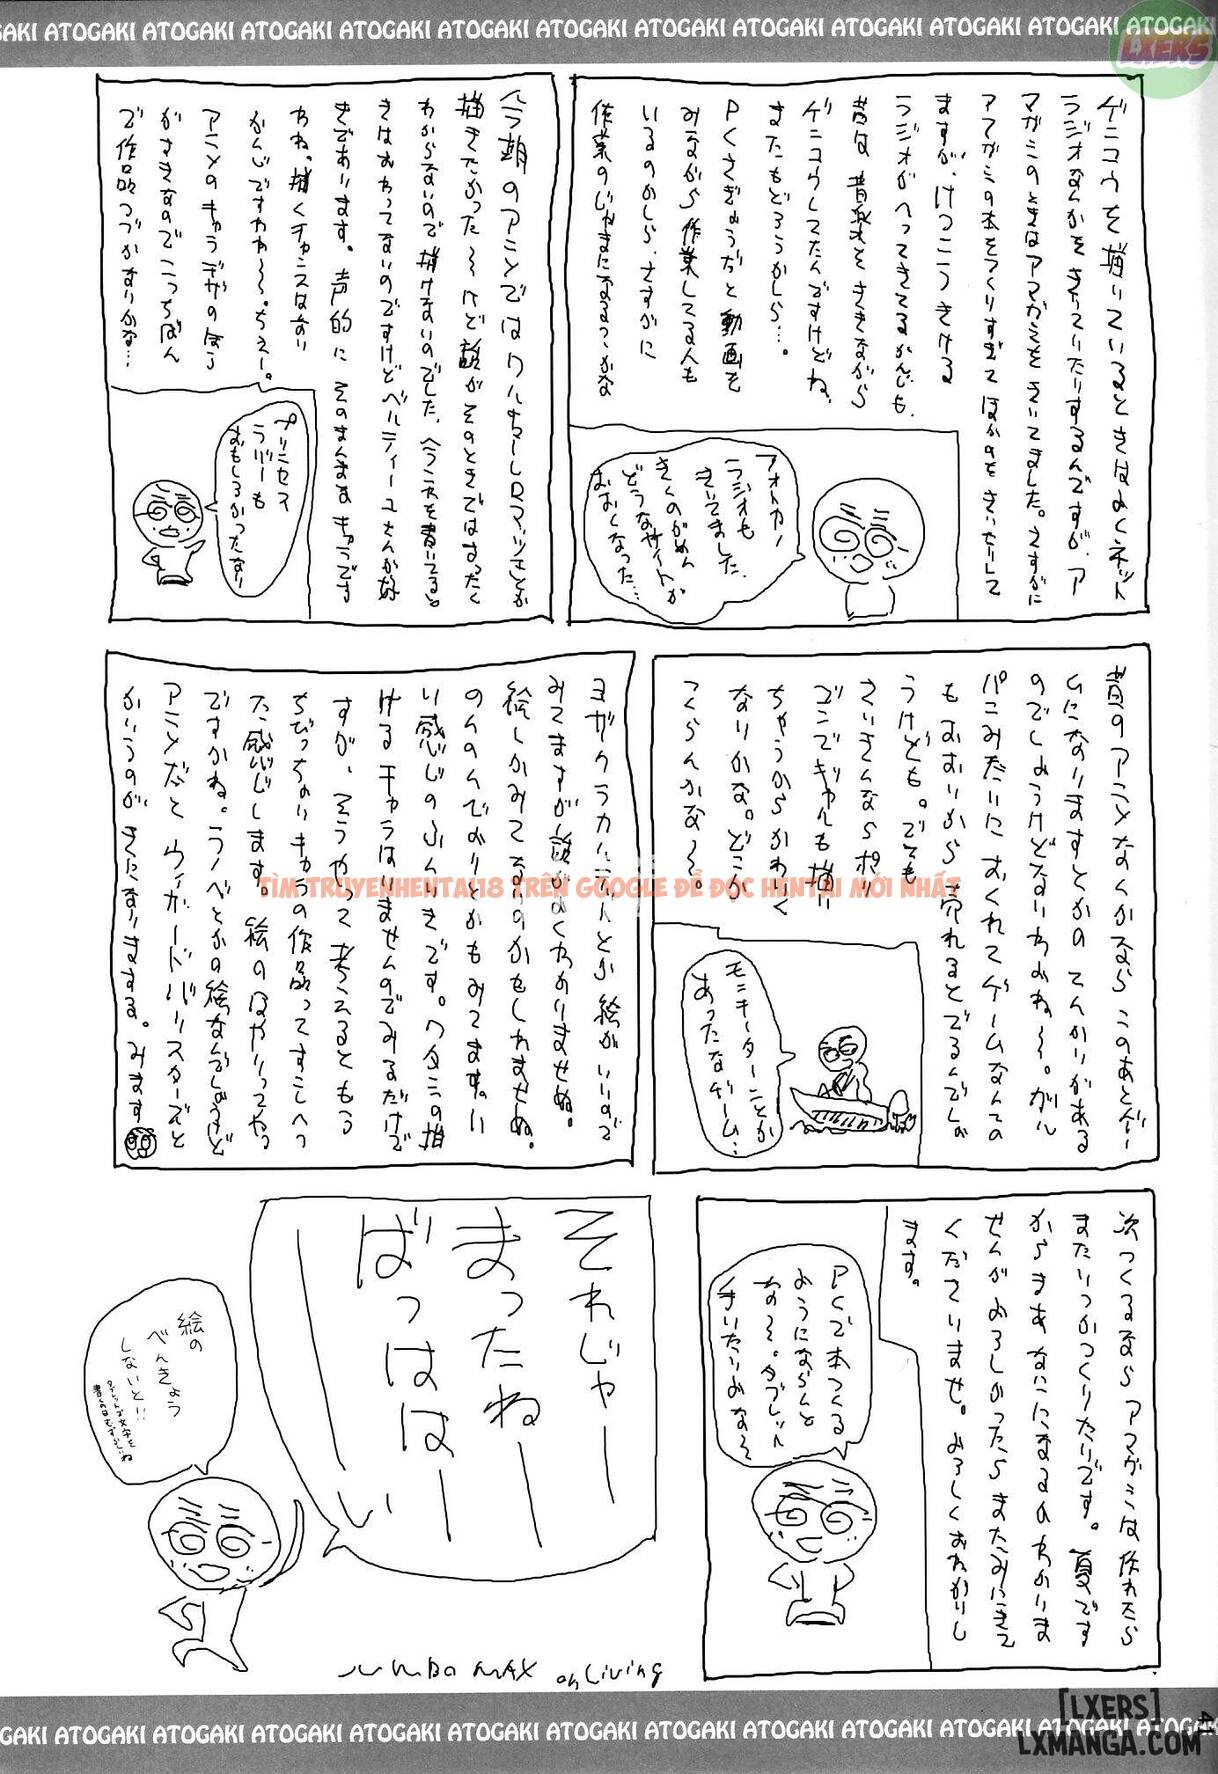 ATOGAKI ATOGAKI ATOGAKI ATOGAKI ATOGAKI ATOGAKI ATOGAKI ATOGAKI ATOGAKI ATOGAKI ATOGAKI ATOGAKI ATOGAKI
LXERS
ゲンコウを描いているときはよくネット
ラジオなんかをきいていたりするんですが、ア
マガミのときはアマガミをきいてました。さすがに
アマガミの本をつくりすぎてほかのをきいたりして
ますが、けっこうきける
ラジオがへってきてるかんじも、
昔は音楽をききながら
ゲンコウしてたんですけどね、
またもどろうかしら…。
PCさぎょうだと動画を
みながら作業してる人も
いるのかしら、さすがに
作業のじゃまになるっかな
フォトカノ
ラジオも
きいてました、
きくのがめん
どうなサイトが
おおくなった…
わからないので描けないのでした。
きであります。声的にそのまんまなキャラです
わね。描くチャンスはない
かんじですわね〜。ちぇー。
アニメのキャラデザのほう
がすきなのでこっちばん
で作品つづかないかな…
プリンセス
ラバーも
おもしろかったなり
昔のアニメなんかなら このあとゲー
ムになりますとかの てんかいがある
のでしょうけどないわよね〜。ガル
パンみたいに おくれてゲームなんての
もおそいから 売れるとでるんでしょ
うけども。でも
ちゃうからかわいく
ないかな。どこか
つくらんかな〜。
モニターことか
あったなゲーム…
ヨザクラカルテットとか 絵がいいので
みてますが 話がよくわかりませぬ。
絵しかみてないのかもしれませぬ。
のんのんびよりとかもみてます。い
い感じのふんいきです。ワタシの描
けるキャラはいませんのでみるだけで
すが、そうやって考えるともう
ちびっちょいキャラの作品ってすこしへっ
た感じします。絵のはやりってやつ
ですかね。ラノベとかの絵なんでしょうけど
アニメだと ウィザードバリスターズと
かいうのが きになりまする。みます
次つくるなら アマガミは作れたら
またいつかつくりたいです。夏です
からまあなにになるかわかりま
せんがよろしかったらまたみにきて
くださいませ。よろしくおねがいし
ます。
PCで本つくる
ようにならんと
なぁ〜。タブレット
それじゃー
まったねー
ばっはは
ーーい
絵の
べんきょう
しないと!!
タブレットで文字を
書くのはむずかしいね
JUMBO MAX on Living
TÌM TRUYENHENTAI18 TRÊN GOOGLE ĐỂ ĐỌC HENTAI MỚI NHẤT
ATOGAKI ATOGAKI ATOGAKI ATOGAKI ATOGAKI ATOGAKI ATOGAKI ATOGAKI ATOGAKI ATOGAKI ATOGAKI ATOGAKI
[LXERS]
LXMANGA.COM
41